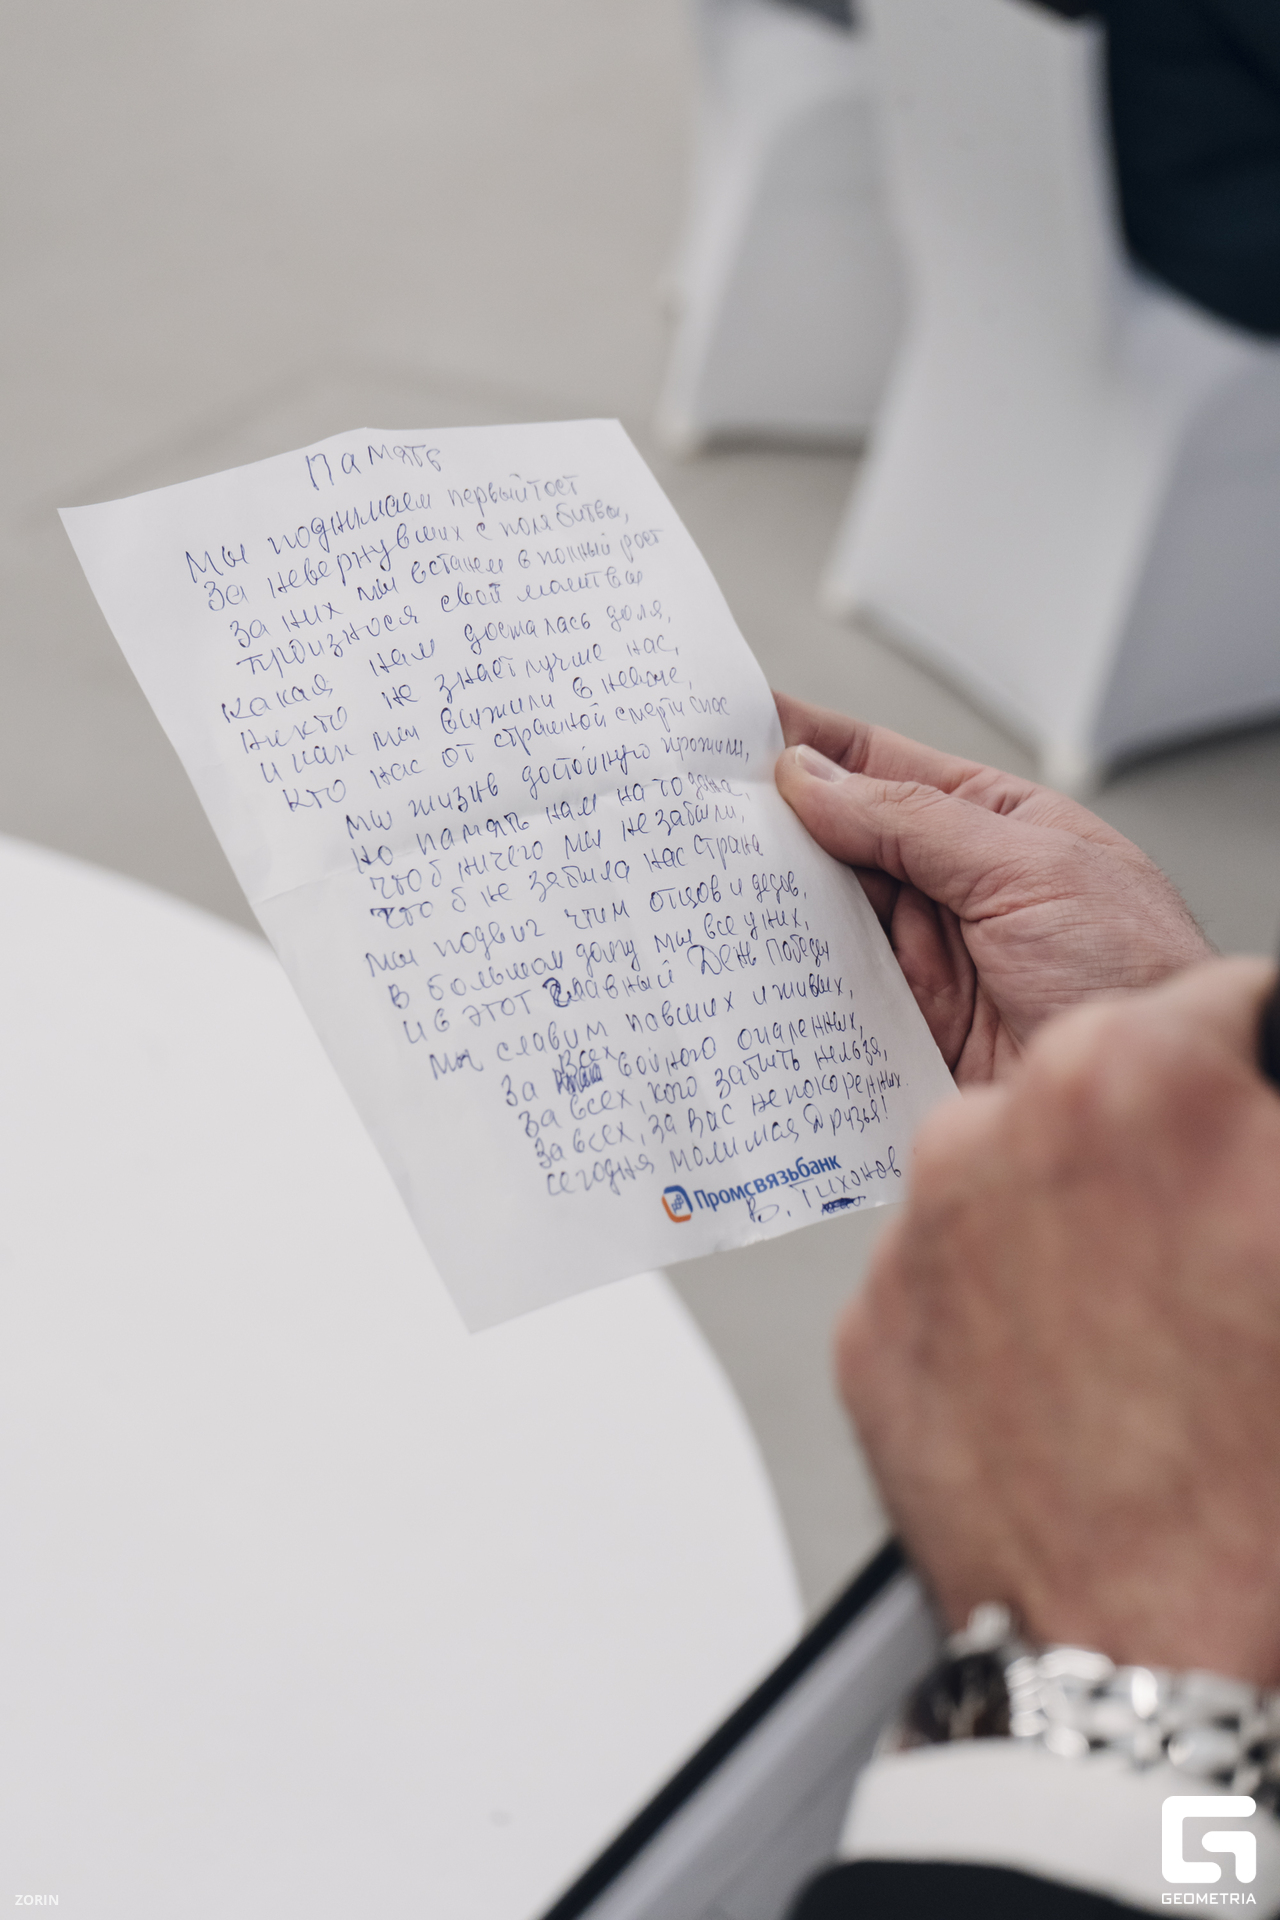 Память
Мы поднимаем первый тост
За невернувших с поля битвы,
За них мы встанем в полный рост
Произнося свои молитвы
Какая нам досталась доля,
Никто не знает лучше нас,
И как мы выжили в неволе,
Кто нас от страшной смерти спас
Мы жизнь достойную прожили,
Но память нам на то дана,
Чтоб ничего мы не забыли,
Что б не забыла нас Страна
Мы подвиг чтим отцов и дедов,
В большом долгу мы все у них,
И в этот Главный День Победы
Мы славим павших и живых,
За всех войною опаленных,
За всех, кого забыть нельзя,
За всех, за Вас непокоренных.
Сегодня молимся Друзья!
Промсвязьбанк
В. Тихонов
ZORIN
GEOMETRIA